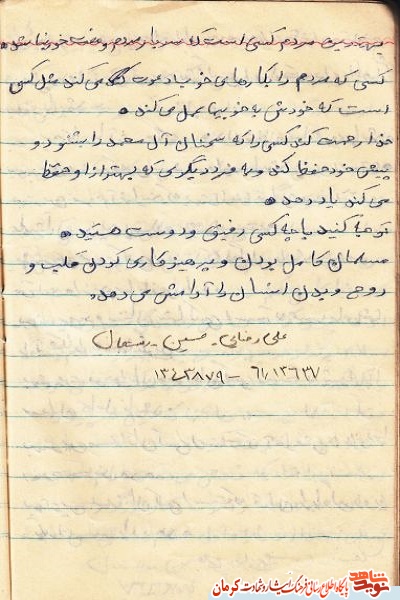 بهترین مردم کسی است که سربار مردم
کسی که مردم را بکارهای خوب دعوت می کند مثل کسی
است که خودش به خوبیها عمل می کند.
خدا رحمت کند کسی را که سخنان آل محمد را بشنود و
پیش خود حفظ کند و به فرد دیگری که بهتر از او حفظ
می کند یاد دهد.
توجه کنید با چه کسی رفیق و دوست هستید.
مسلمان کامل بودن و پرهیزکاری کردن قلب و
روح و بدن انسان را آرامش می دهد.
علی رضایی - حسین
شاهد
نوید
پایگاه اطلاع رسانی فرهنگ ایثار و شهادت کرمان